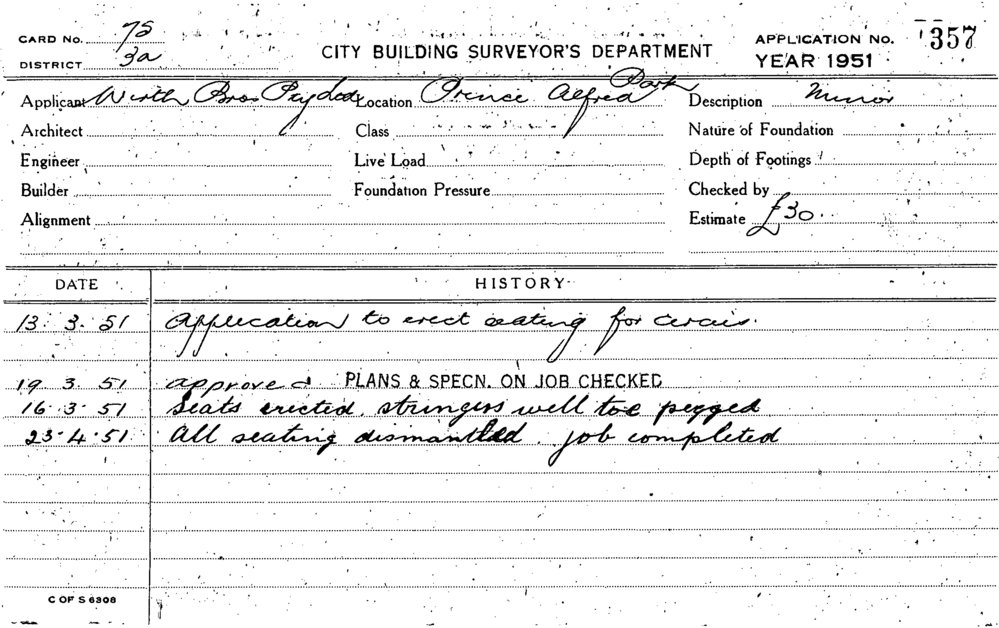 CARD No. 75
DISTRICT 3a
CITY BUILDING SURVEYOR'S DEPARTMENT
APPLICATION No. 357
YEAR 1951
Applicant Wirth Bros Pty Ltd Location Prince Alfred Park Description Minor
Architect Class Nature of Foundation
Engineer Live Load Depth of Footings
Builder Foundation Pressure Checked by
Alignment Estimate £30
DATE HISTORY
13. 3. 51 Application to erect seating for circus.
19. 3. 51 approved PLANS & SPECN. ON JOB CHECKED
16. 3. 51 Seats erected, stringers well toe pegged
23. 4. 51 All seating dismantled. job completed
C OF S 6308